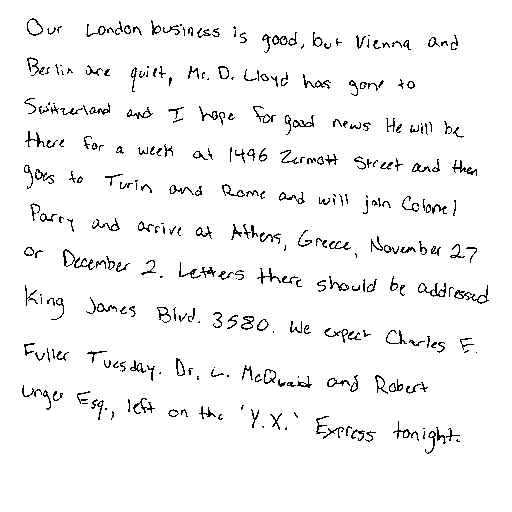 Our London business is good, but Vienna and
Berlin are quiet, Mr. D. Lloyd has gone to
Switzerland and I hope for good news He will be
there for a week at 1496 Zermott Street and then
goes to Turin and Rome and will join Colonel
Parry and arrive at Athens, Greece, November 27
or December 2. Letters there should be addressed
King James Blvd. 3580. We expect Charles E.
Fuller Tuesday. Dr. L. McQuaid and Robert
Unger Esq., left on the 'Y.X.' Express tonight.